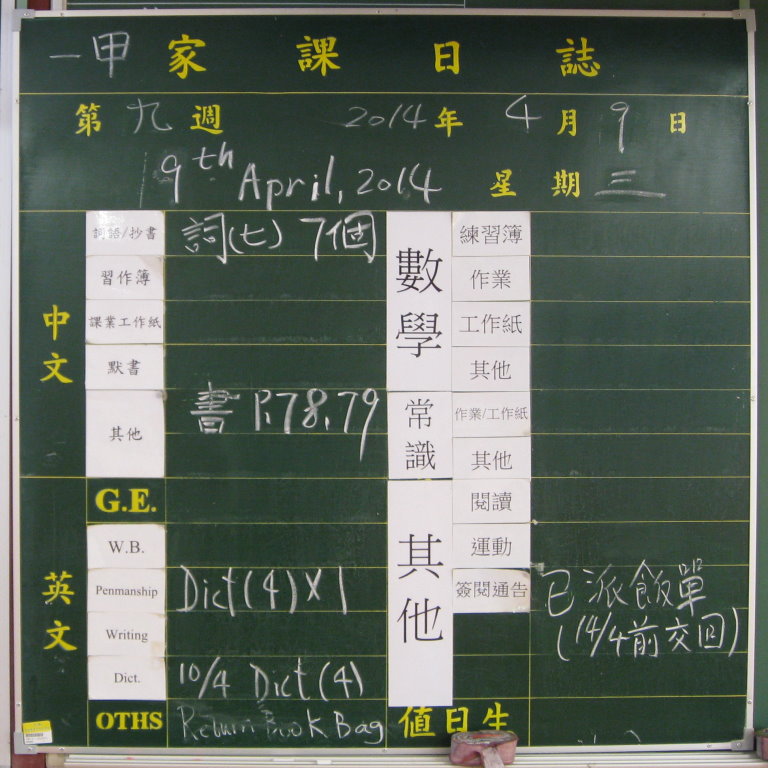 一甲 家課日誌
第九週 2014年4月9日
9th April, 2014 星期三
中文
詞語/抄書 詞(七) 7個
習作簿
課業工作紙
默書
其他 書 P.78,79
英文
G.E.
W.B.
Penmanship Dict(4)x1
Writing
Dict. 10/4 Dict(4)
OTHS Return Book Bag
數學
練習簿
作業
工作紙
其他
常識
作業/工作紙
其他
其他
閱讀
運動
簽閱通告 已派飯單
(14/4前交回)
值日生